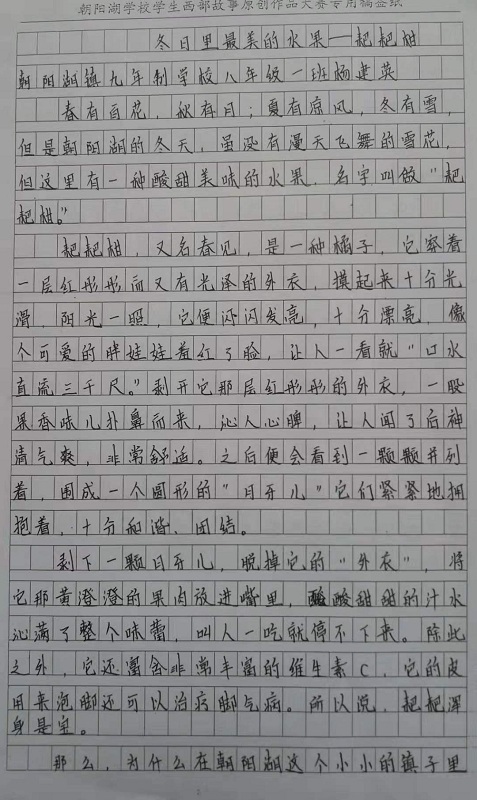 朝阳湖学校学生西部故事原创作品大赛专用稿签纸
冬日里最美的水果——耙耙柑
朝阳湖镇九年制学校八年级一班杨建英
春有百花,秋有月;夏有凉风,冬有雪,
但是朝阳湖的冬天,虽没有漫天飞舞的雪花,
但这里有一种酸甜美味的水果,名字叫做“耙
耙柑。”
耙耙柑,又名春见,是一种橘子,它穿着
一层红彤彤而又有光泽的外衣,摸起来十分光
滑,阳光一照,它便闪闪发亮,十分漂亮,像
个可爱的胖娃娃羞红了脸,让人一看就“口水
直流三千尺。”剥开它那层红彤彤的外衣,一股
果香味儿扑鼻而来,沁人心脾,让人闻了后神
清气爽,非常舒适。之后便会看到一颗颗并列
着,围成一个圆形的“月牙儿”它们紧紧地拥
抱着,十分和谐、团结。
剥下一颗月牙儿,脱掉它的“外衣”,将
它那黄澄澄的果肉放进嘴里,酸酸甜甜的汁水
沁满了整个味蕾,叫人一吃就停不下来。除此
之外,它还富含非常丰富的维生素C,它的皮
用来泡脚还可以治疗脚气病。所以说,耙耙浑
身是宝。
那么,为什么在朝阳湖这个小小的镇子里